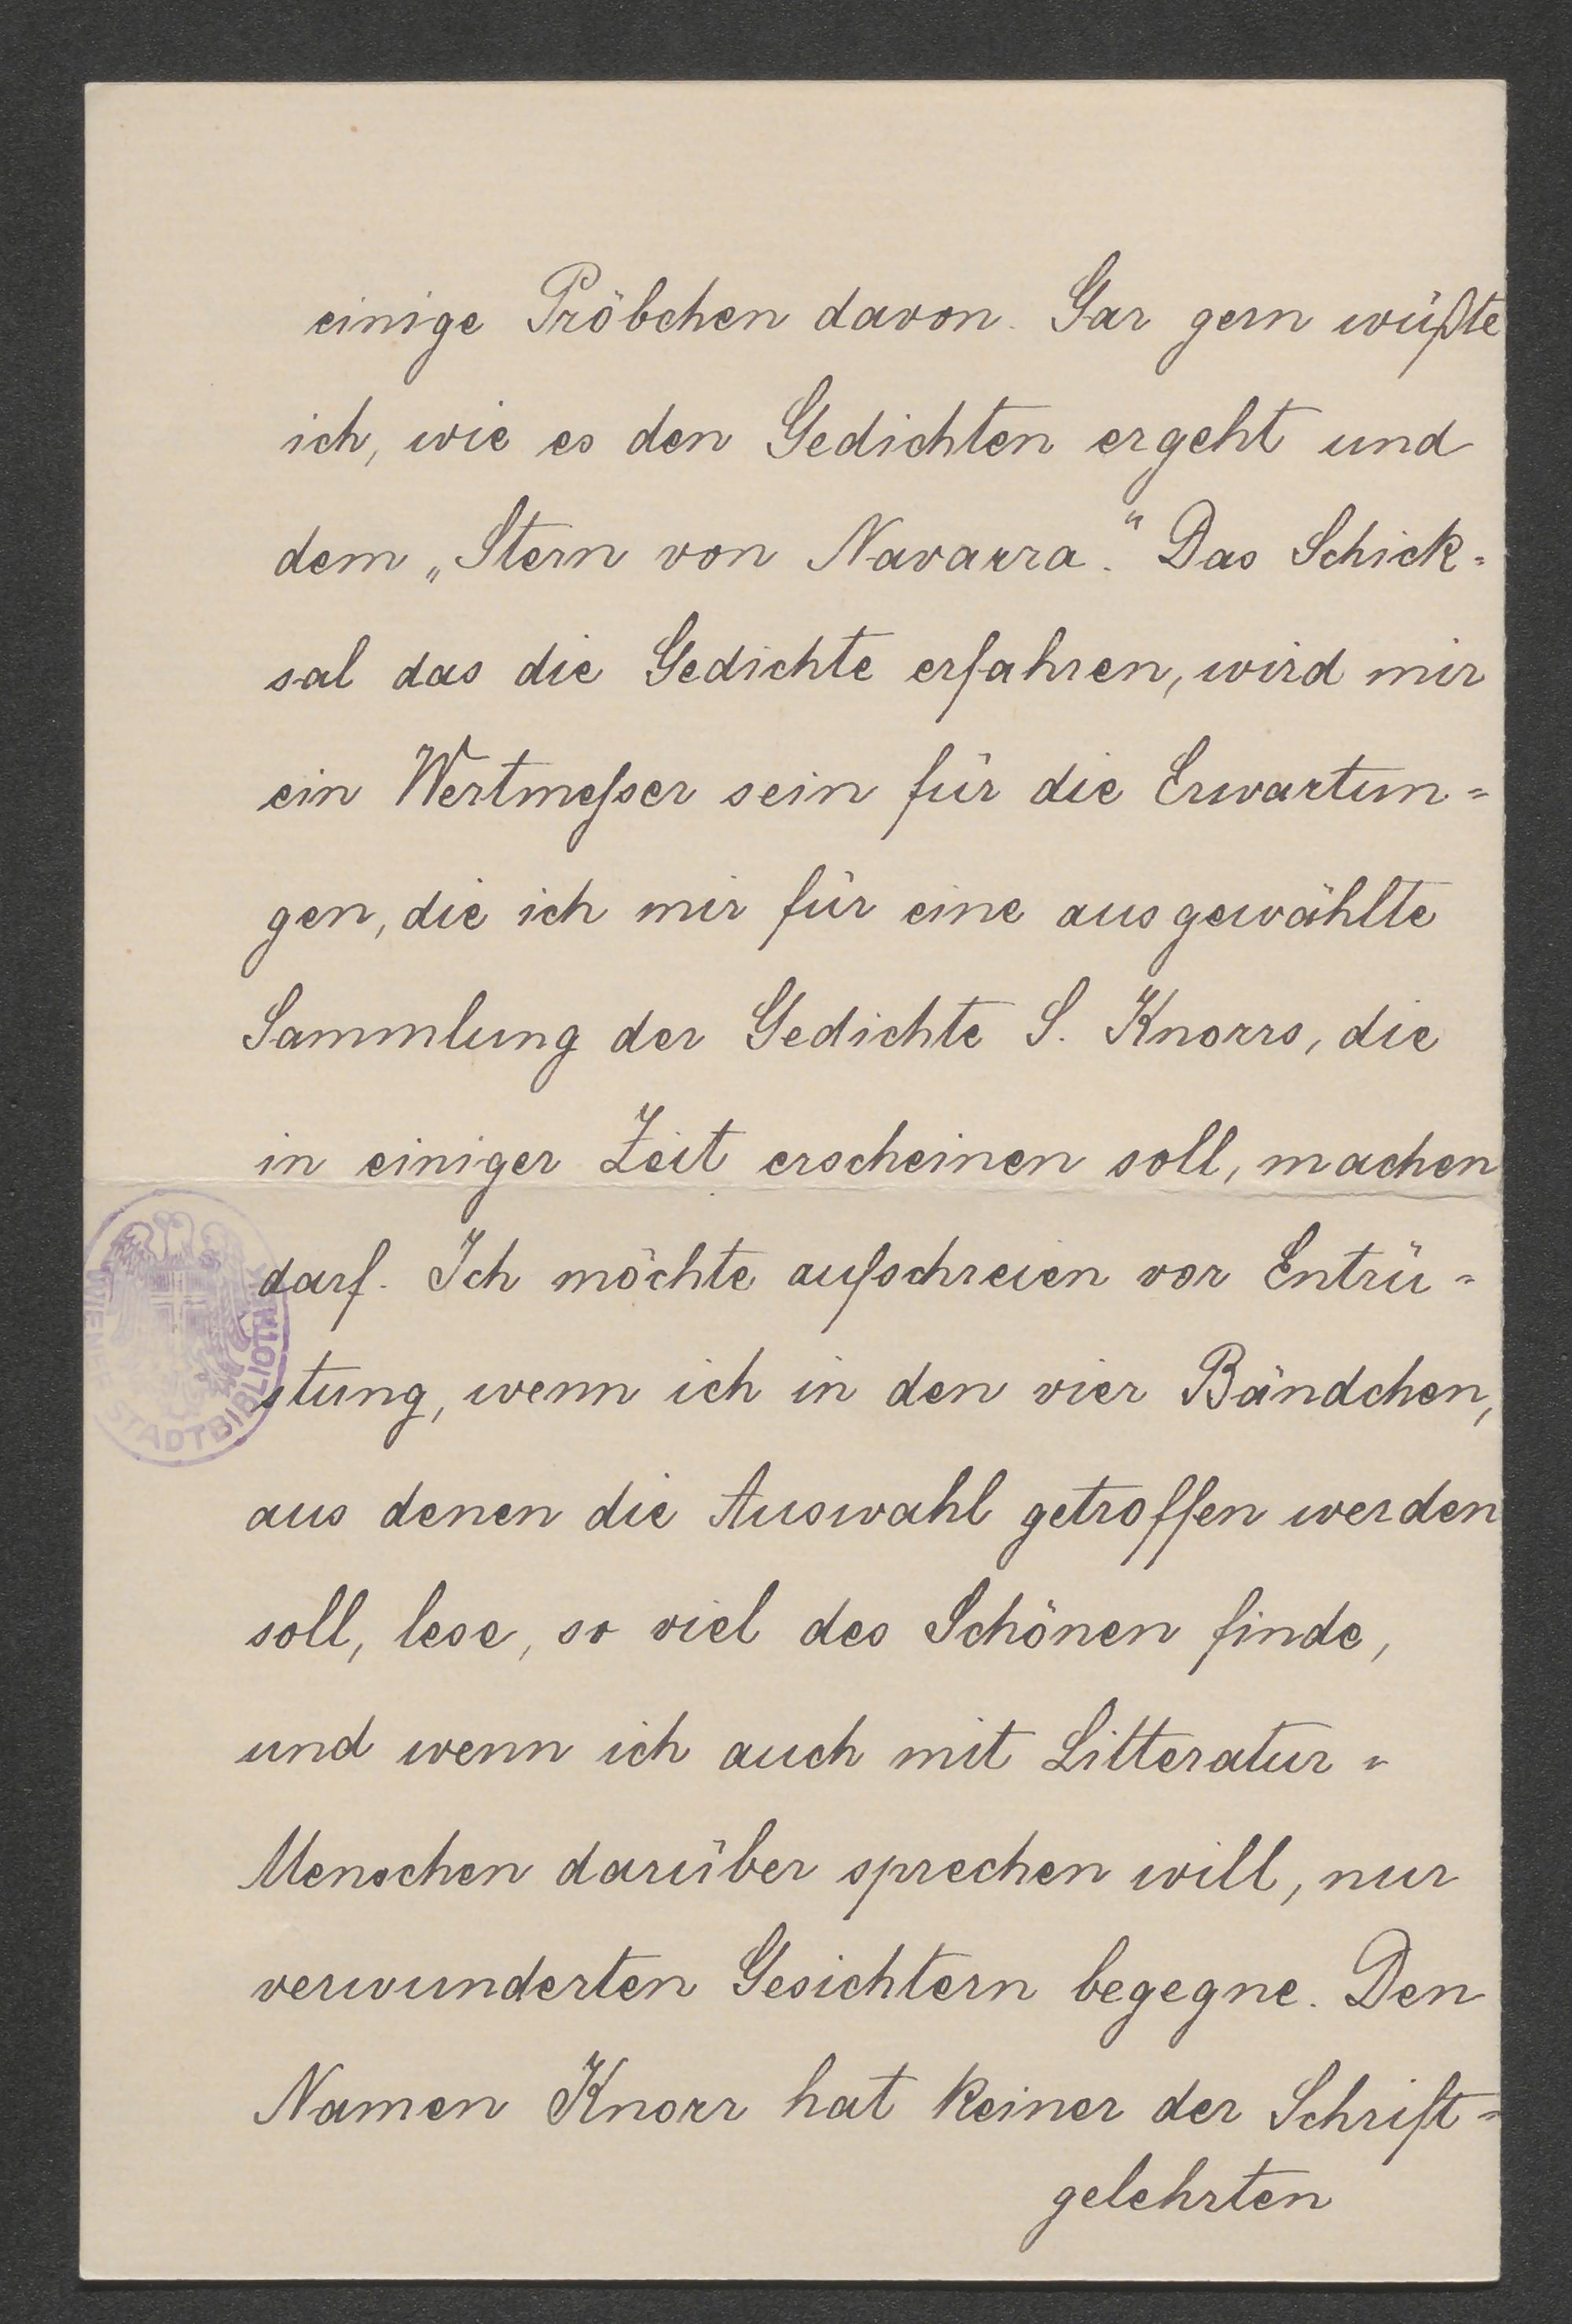 einige Pröbchen davon. Gar gern wüßte
ich, wie es den Gedichten ergeht und
dem „Stern von Navarra.“ Das Schick=
sal das die Gedichte erfahren, wird mir
ein Wertmesser sein für die Erwartun=
gen, die ich mir für eine ausgewählte
Sammlung der Gedichte S. Knorrs, die
in einiger Zeit erscheinen soll, machen
darf. Ich möchte aufschreien vor Entrü=
stung, wenn ich in den vier Bändchen,
aus denen die Auswahl getroffen werden
soll, lese, so viel des Schönen finde,
und wenn ich auch mit Litteratur=
Menschen darüber sprechen will, nur
verwunderten Gesichtern begegne. Den
Namen Knorr hat keiner der Schrift=
gelehrten
STADTBIBLIOTHEK